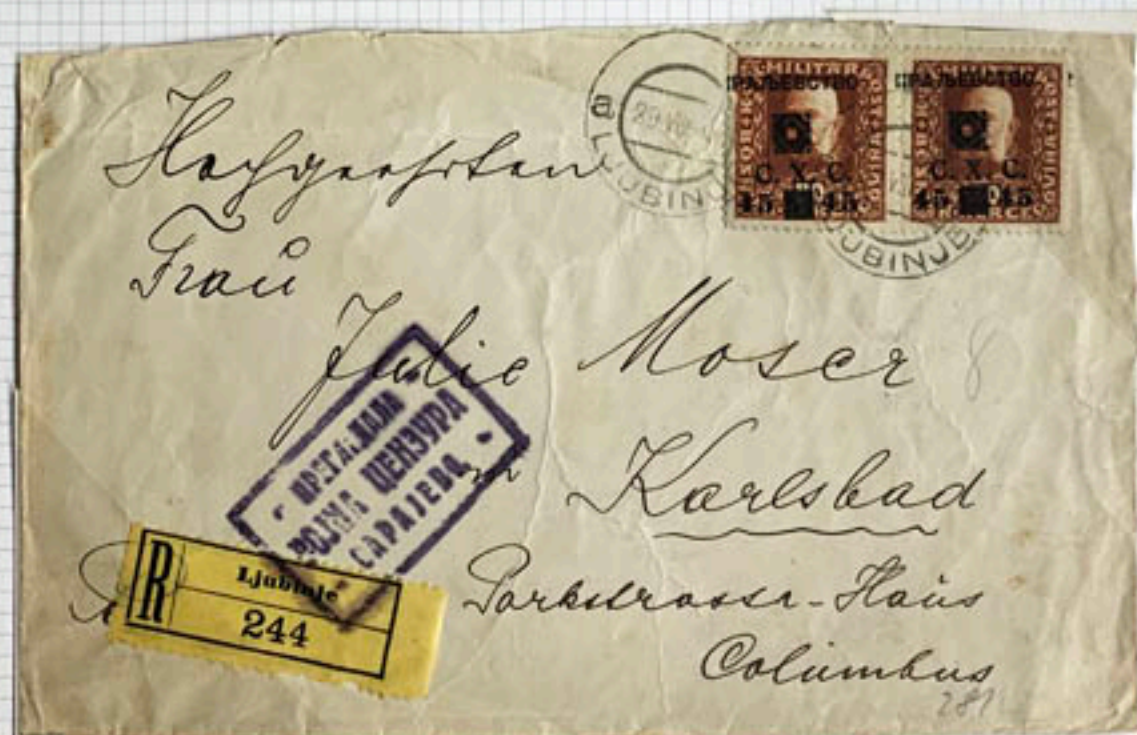 Hochgeehrten
Frau
Julie Moser
in Karlsbad
Parkstrasse-Haus
Columbus
281
8
LJUBINJE
a
КРАЉЕВСТВО
КРАЉЕВСТВО
С. Х. С.
С. Х. С.
45 45
45 45
MILITÄR
ПРЕГЛЕДАЛА
ВОЈНА ЦЕНЗУРА
САРАЈЕВО
R
Ljubinje
244